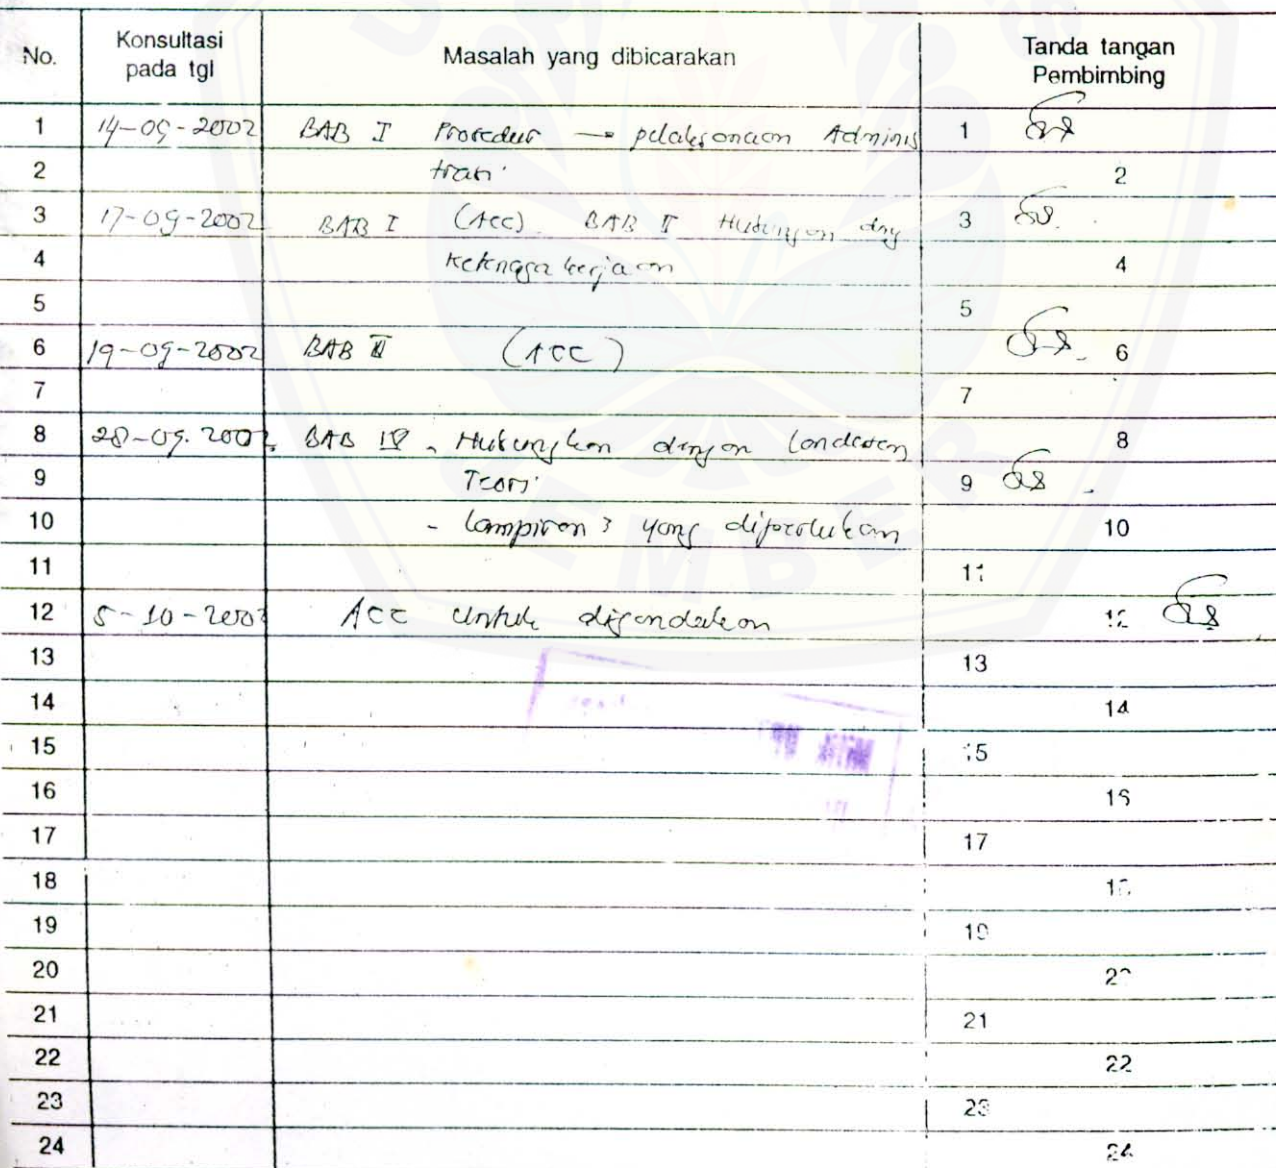 No. Konsultasi pada tgl Masalah yang dibicarakan Tanda tangan Pembimbing
1 14-09-2002 BAB I Prosedur → pelaksanaan Adminis 1
2 trasi 2
3 17-09-2002 BAB I (Acc). BAB II Hubungan dng 3
4 ketenagakerjaan 4
5 5
6 19-09-2002 BAB II (ACC) 6
7 7
8 28-09-2002 BAB IV - Hubungkan dengan landasan 8
9 Teori 9
10 - lampiran² yang diperlukan 10
11 11
12 5-10-2002 Acc untuk digandakan 12
13 13
14 14
15 15
16 16
17 17
18 18
19 19
20 20
21 21
22 22
23 23
24 24
JEMBER